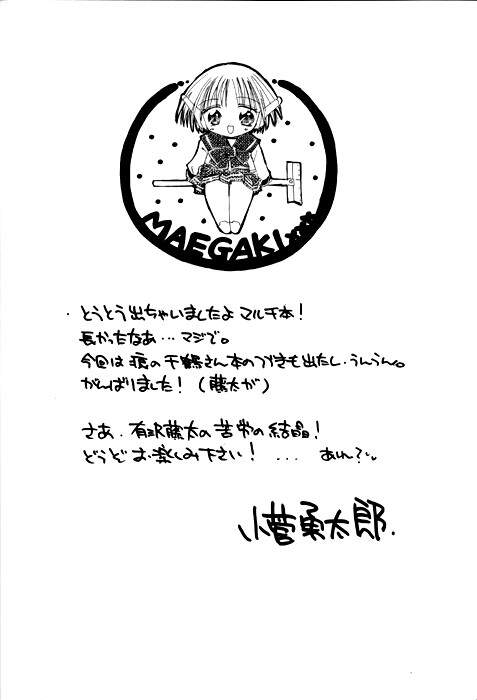 MAEGAKI
・とうとう出ちゃいましたよ マルチ本！
長かったなあ…マジで。
今回は 痕の千鶴さん本のつづきも出たし、うんうん。
がんばりました！（藤太が）
さあ、有沢藤太の苦労の結晶！
どうぞ お楽しみ下さい！ ... あれ？
小菅勇太郎.